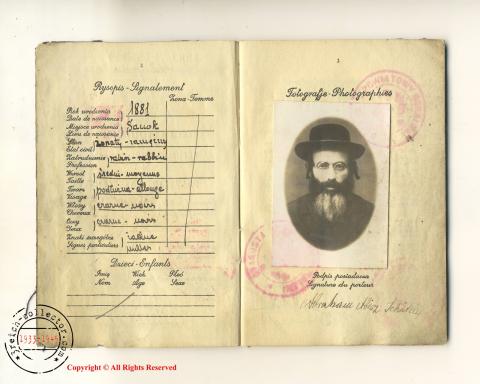 2
Rysopis - Signalement
Żona - Femme
Rok urodzenia
Date de naissance
1881
Miejsce urodzenia
Lieu de naissance
Sanok
Stan
Etat civil
żonaty -
Zatrudnienie
Profession
rabin - rabbin
Wzrost
Taille
średni - moyenne
Twarz
Visage
Włosy
Cheveux
czarne - noirs
Oczy
Yeux
czarne - noirs
Znaki szczególne
Signes particuliers
Dzieci - Enfants
Imię Wiek Płeć
Nom Age Sexe
3
Fotografje - Photographies
Podpis posiadacza
Signature du porteur
Abraham
3reich-collector.com
1933-1945
Copyright © All Rights Reserved